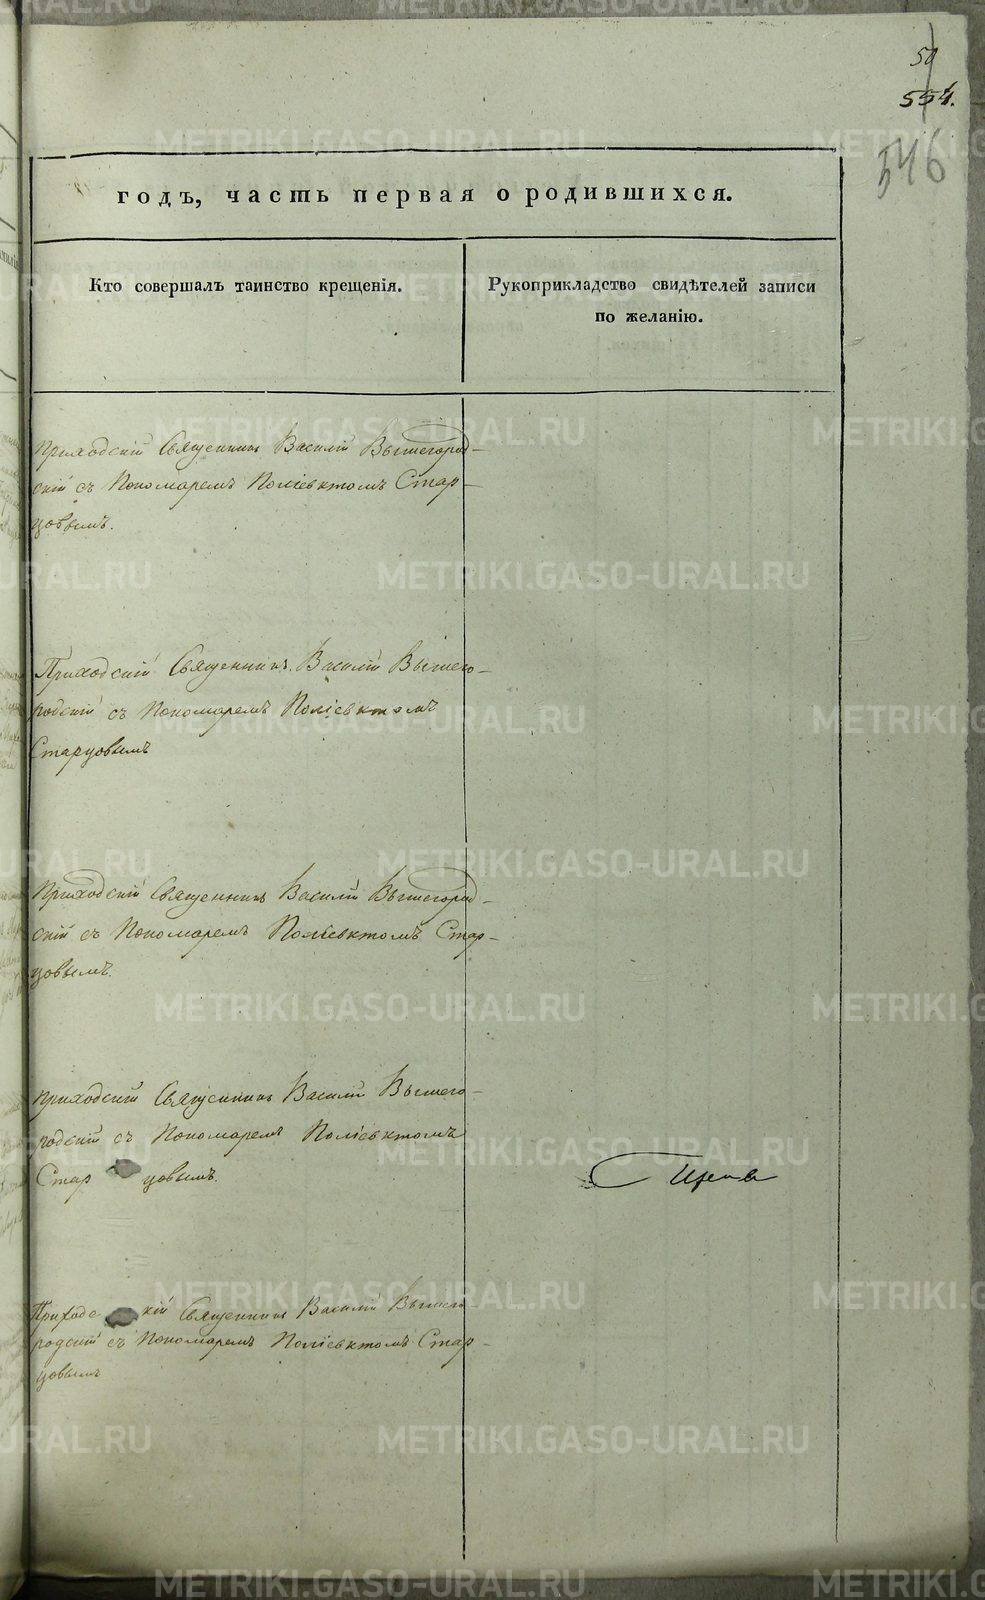 50
554.
546
годъ, часть первая о родившихся.
Кто совершалъ таинство крещенія.
Рукоприкладство свидѣтелей записи
по желанію.
Приходскій Священникъ Василій Вышегород-
скій съ Пономаремъ Поліевктомъ Стар-
цовымъ.
Приходскій Священникъ Василій Вышего-
родскій съ Пономаремъ Поліевктомъ
Старцовымъ
Приходскій Священникъ Василій Вышегород-
скій съ Пономаремъ Поліевктомъ Стар-
цовымъ.
Приходскій Священникъ Василій Вышего-
родскій съ Пономаремъ Поліевктомъ
Стар цовымъ.
Приходс кій Священникъ Василій Вышего
родскій съ Пономаремъ Поліевктомъ Стар-
цовымъ
METRIKI.GASO-URAL.RU